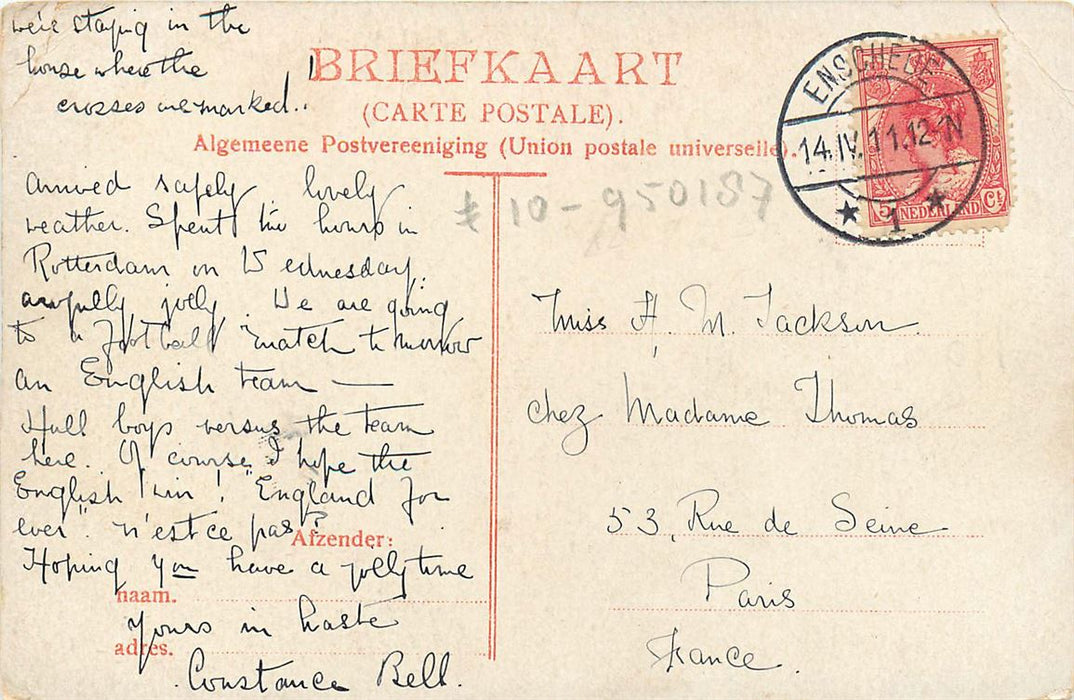 we're staying in the
house where the
crosses are marked..
BRIEFKAART
(CARTE POSTALE).
Algemeene Postvereeniging (Union postale universelle).
ENSCHEDE
14.IV.11.12-N
1
5 NEDERLAND Ct
10-950187
arrived safely lovely
weather. Spent five hours in
Rotterdam on Wednesday.
awfully jolly. We are going
to a football match to morrow
an English team —
Hull boys versus the team
here. Of course I hope the
English win! "England for
ever" n'est ce pas?
Afzender:
Hoping you have a jolly time
naam.
Yours in haste
adres.
Constance Bell.
Miss H. M. Jackson
chez Madame Thomas
53, Rue de Seine
Paris
France.